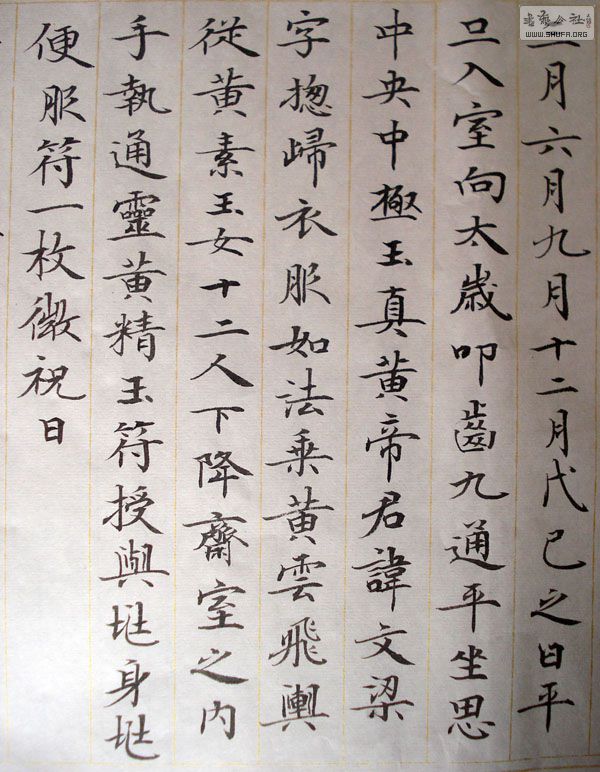 三月六月九月十二月戊己之日平
旦入室向太歲叩齒九通平坐思
中央中極玉真黄帝君諱文梁
字揔歸衣服如法乗黄雲飛輿
從黄素玉女十二人下降齋室之内
手執通靈黄精玉符授與垗身垗
便服符一枚微祝曰
WWW.SHUFA.ORG